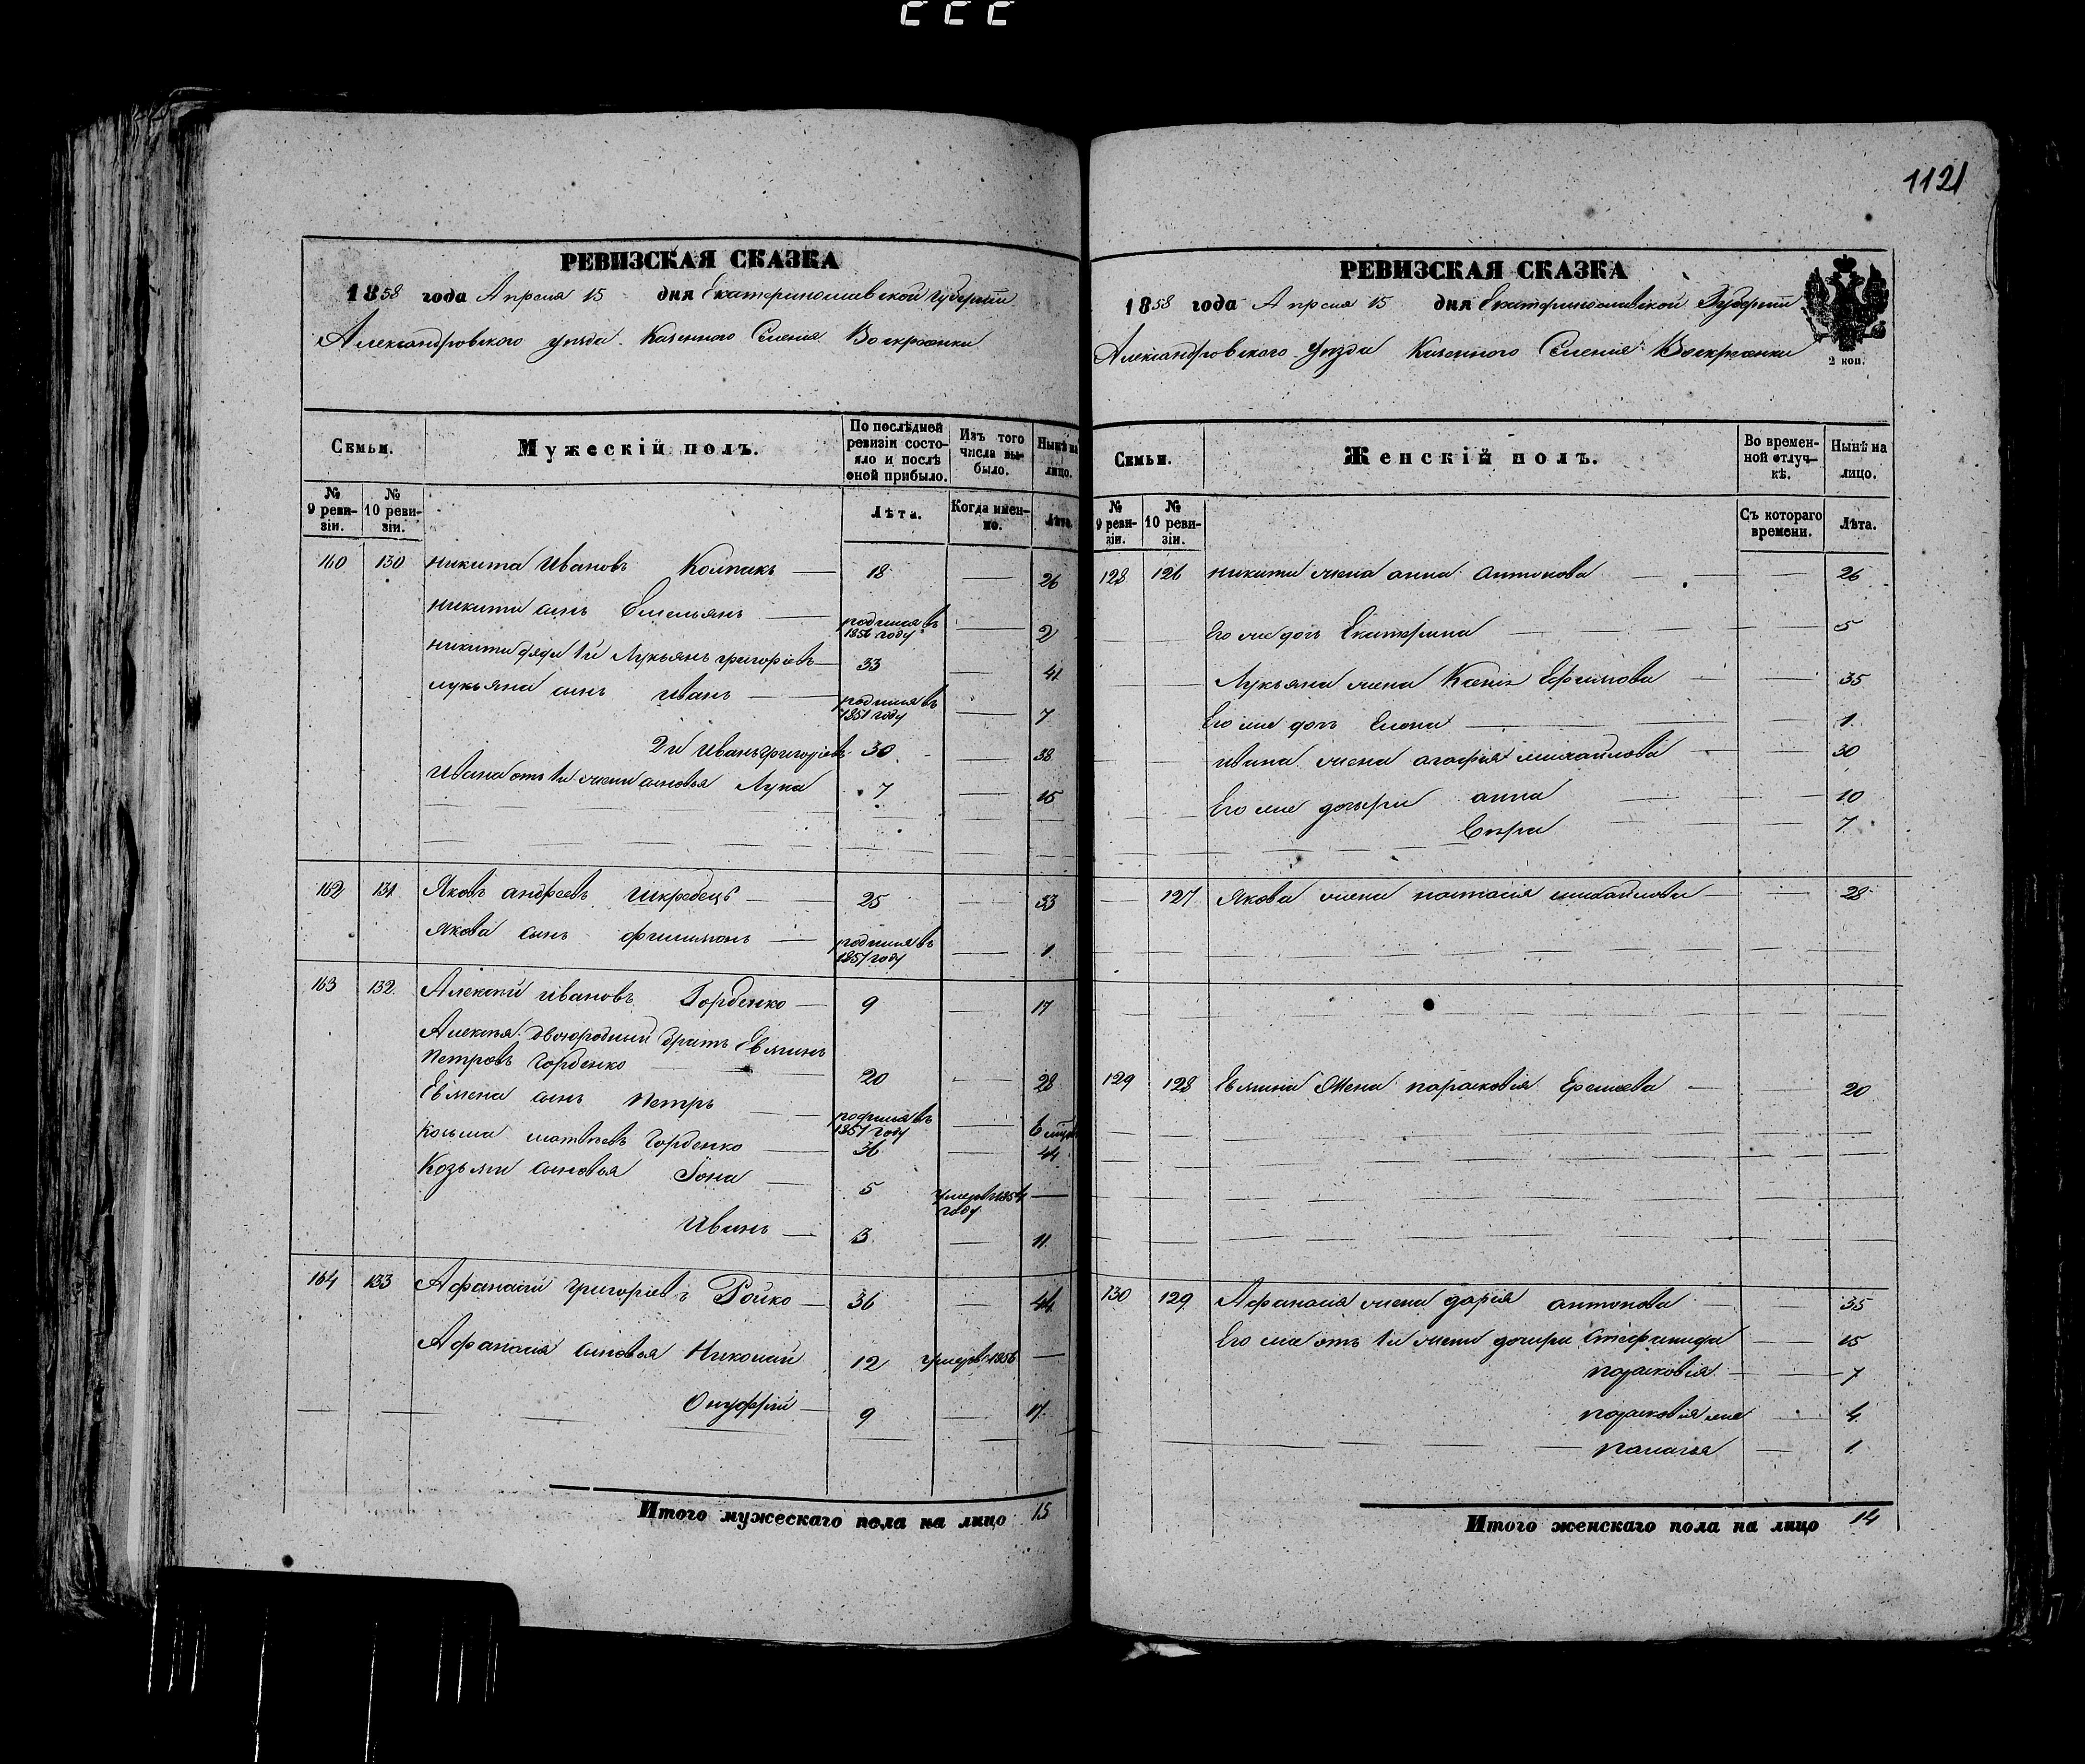 1121
РЕВИЗСКАЯ СКАЗКА
1858 года Апреля 15 дня Екатеринославской Губернiи
Александровского уезда Казенного Селенiя Воскресенки
Семьи.
Мужескій полъ.
По послѣдней ревизіи состояло и послѣ оной прибыло.
Изъ того числа выбыло.
Нынѣ на лицо.
№ 9 ревизіи.
№ 10 ревизіи.
Лѣта.
Когда именно.
Лѣта.
160 130 Никита Ивановъ Колпакъ 18 26
Никиты сынъ Емельянъ родился въ 1856 году 2
Никиты дяди 1й Лукьянъ Григорiевъ 33 41
Лукьяна сынъ Иванъ родился въ 1851 году 7
2й Иванъ Григорiевъ 30 38
Ивана отъ 1й жены сыновья Лука 7 15
162 131 Яковъ Андреевъ Шкребецъ 25 33
Якова сынъ Филимонъ родился въ 1857 году 1
163 132 Алексей Ивановъ Горбенко 9 17
Алексея двоюродный братъ Евмѣнъ
Петровъ Горбенко 20 28
Евмена сынъ Петръ родился въ 1857 году 6
Козьма Матвѣевъ Горбенко 36 44
Козьмы сыновья Iона 5 умеръ въ 1854 году
Иванъ 3 11
164 133 Афанасiй Григорiевъ Бойко 36 44
Афанасiя сыновья Николай 12 умеръ 1856
Онуфрiй 9 17
Итого мужескаго пола на лицо 15
РЕВИЗСКАЯ СКАЗКА
1858 года Апреля 15 дня Екатеринославской Губернiи
Александровского уезда Казенного Селенiя Воскресенки
2 коп.
Семьи.
Женскій полъ.
Во временной отлучкѣ.
Нынѣ на лицо.
№ 9 ревизіи.
№ 10 ревизіи.
Съ котораго времени.
Лѣта.
128 126 Никиты жена Анна Антонова 26
Его же дочь Екатерина 5
Лукьяна жена Ксенiя Ефимова 35
Его же дочь Елена 1
Ивана жена Агафiя Михайлова 30
Его же дочери Анна 10
7
127 Якова жена Настасiя Михайлова 28
129 128 Евмина жена Парасковiя Еремеева 20
130 129 Афанасiя жена Дарiя Антонова 35
Его же отъ 1й жены дочери Стефанида 15
Парасковiя 7
Парасковiя же 4
Палагея 1
Итого женскаго пола на лицо 14